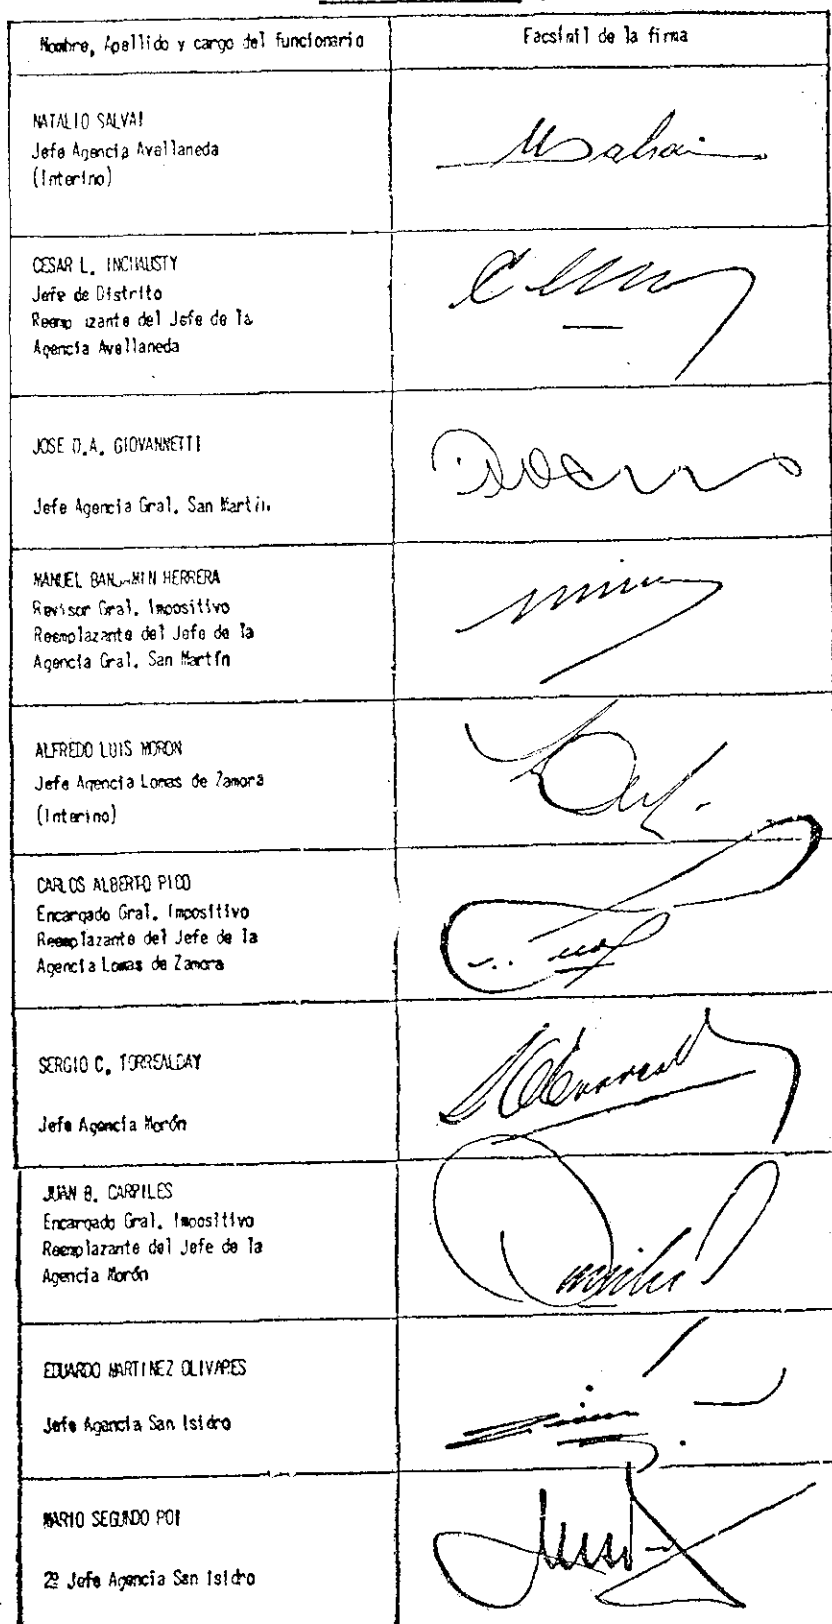 Nombre, Apellido y cargo del funcionario
Facsímil de la firma
NATALIO SALVAI
Jefe Agencia Avellaneda
(Interino)
CESAR L. INCHAUSTY
Jefe de Distrito
Reemp zante del Jefe de la
Agencia Avellaneda
JOSE D.A. GIOVANNETTI
Jefe Agencia Gral. San Martín
MANUEL HERRERA
Revisor Gral. Impositivo
Reemplazante del Jefe de la
Agencia Gral. San Martín
ALFREDO LUIS MORON
Jefe Agencia Lomas de Zamora
(Interino)
CARLOS ALBERTO PICO
Encargado Gral. Impositivo
Reemplazante del Jefe de la
Agencia Lomas de Zamora
SERGIO C. TORREALDAY
Jefe Agencia Morón
JUAN B. CARPILES
Encargado Gral. Impositivo
Reemplazante del Jefe de la
Agencia Morón
EDUARDO MARTINEZ OLIVARES
Jefe Agencia San Isidro
MARIO SEGUNDO POI
2º Jefe Agencia San Isidro